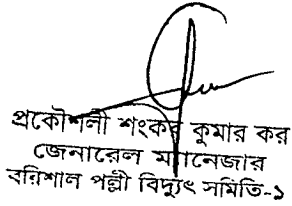 প্রকৌশলী শংকর কুমার কর
জেনারেল ম্যানেজার
বরিশাল পল্লী বিদ্যুৎ সমিতি-১